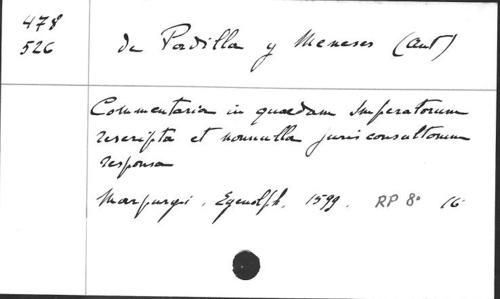 478
526
de Padilla y Meneses (Ant)
Commentaria in quaedam Imperatorum
rescripta et nonnulla jurisconsultorum
responsa
Marpurgi, Egenolph. 1599. RP 8° 16